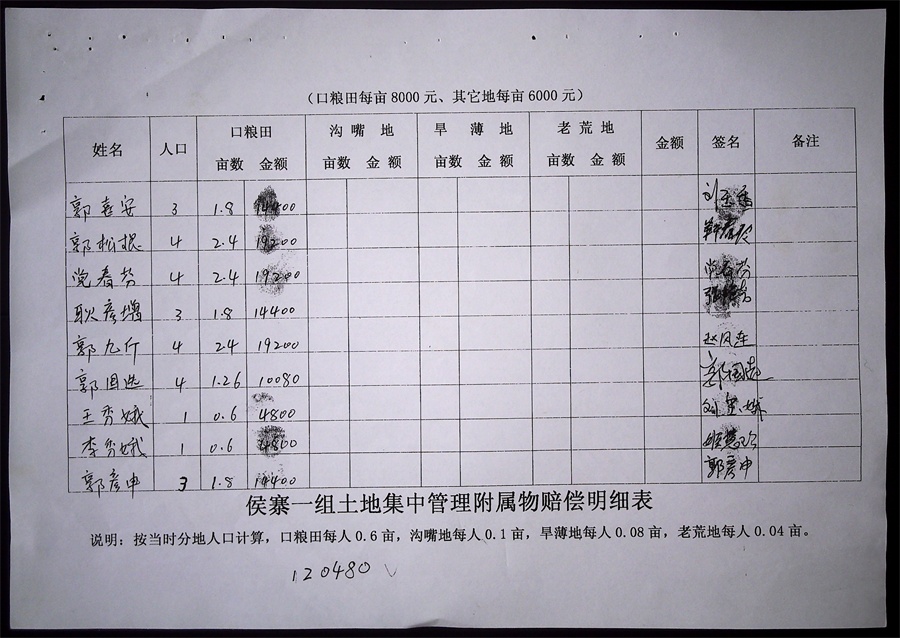 (口粮田每亩8000元、其它地每亩6000元)
姓名 人口 口粮田 沟嘴地 旱薄地 老荒地 金额 签名 备注
亩数 金额 亩数 金额 亩数 金额 亩数 金额
郭喜安 3 1.8 14400
郭松根 4 2.4 19200
党春芳 4 2.4 19200 党春芳
耿彦增 3 1.8 14400
郭九斤 4 24 19200 赵凤连
郭国选 4 1.26 10080 郭国选
王秀娥 1 0.6 4800
李秀娥 1 0.6 4800
郭彦申 3 1.8 14400 郭彦申
侯寨一组土地集中管理附属物赔偿明细表
说明：按当时分地人口计算，口粮田每人0.6亩，沟嘴地每人0.1亩，旱薄地每人0.08亩，老荒地每人0.04亩。
120480